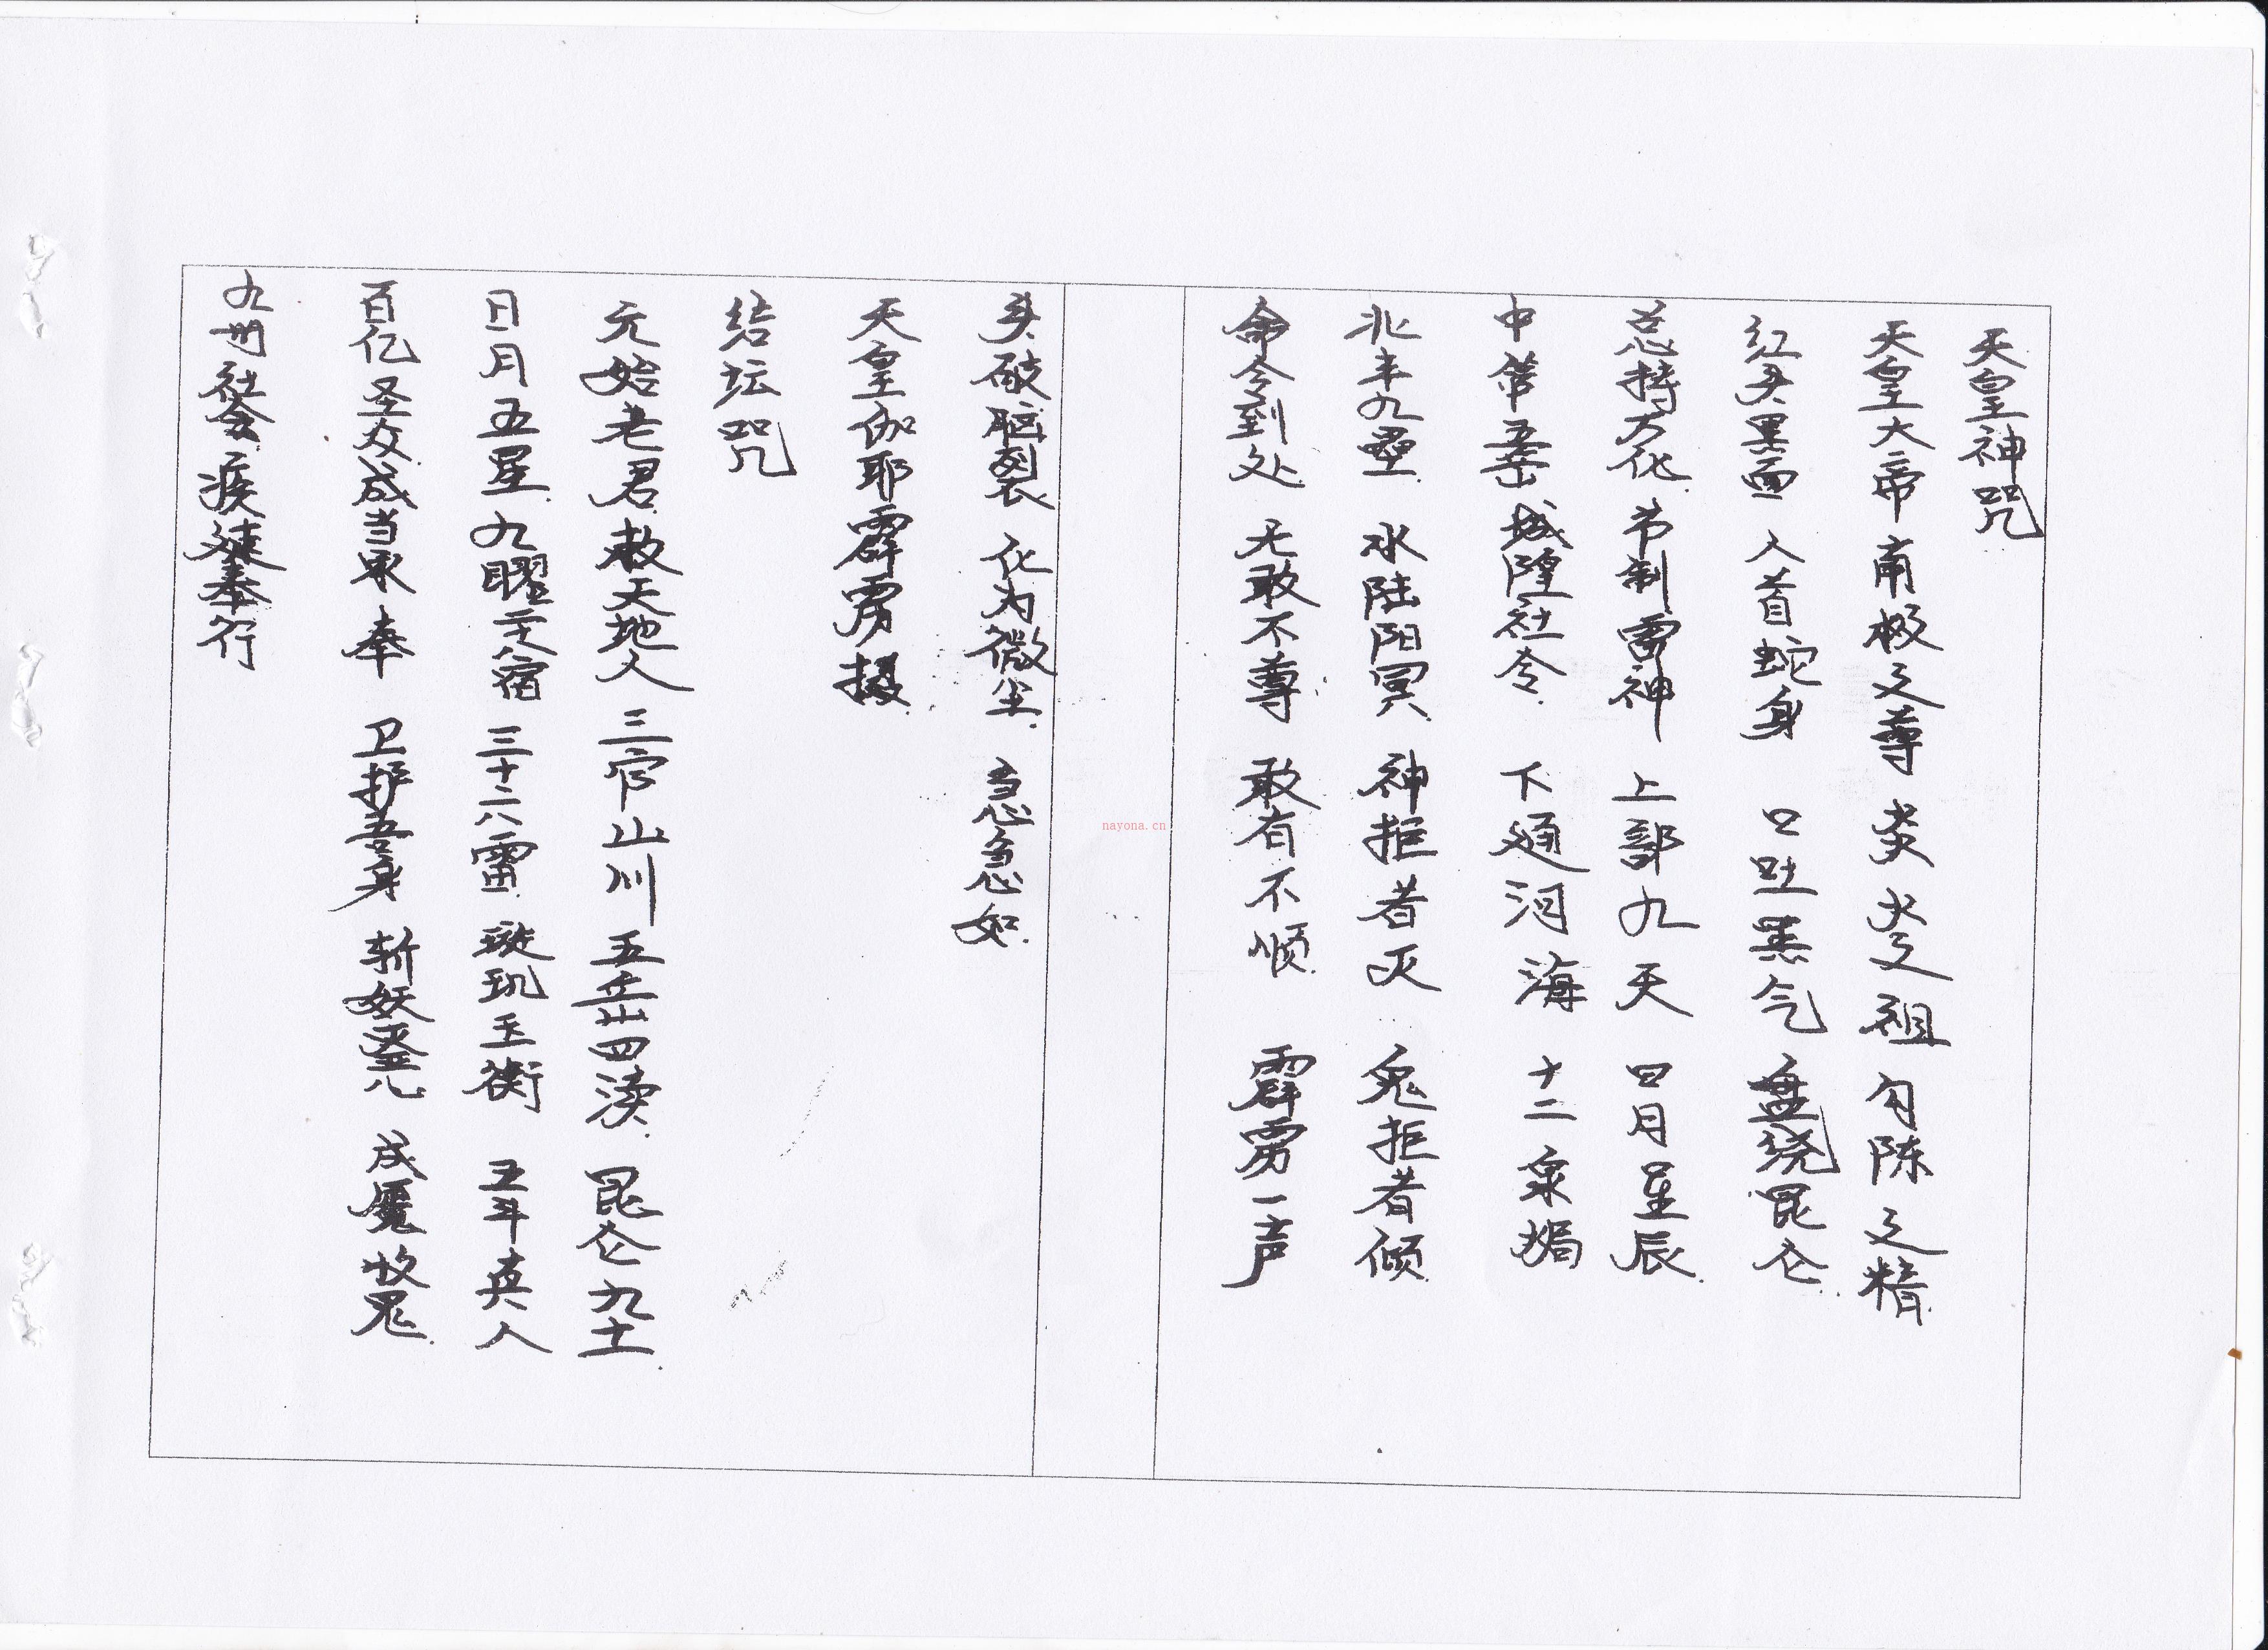 天皇神咒
天皇大帝 南极之尊 炎炎火之祖 勾陈之精
红头黑面 人首蛇身 口吐黑气 盘绕昆仑
总持万化 节制雷神 上部九天 日月星辰
中管五岳 城隍社令 下通河海 十二泉
北丰九垒 水陆阳冥 神拒者灭 鬼拒者倾
命令到处 无敢不尊 敢有不顺 霹雳一声
头破脑裂 化为微尘 急急如
天皇伽耶霹雳摄
结坛咒
元始老君 敕天地人 三官山川 五岳四渎 昆仑九土
日月五星 九曜二十八宿 三十六雷 璇玑玉衡 五斗真人
百亿圣众 咸当承奉 卫护吾身 斩妖灭 成魔收鬼
九州社会 疾速奉行
nayona.cn